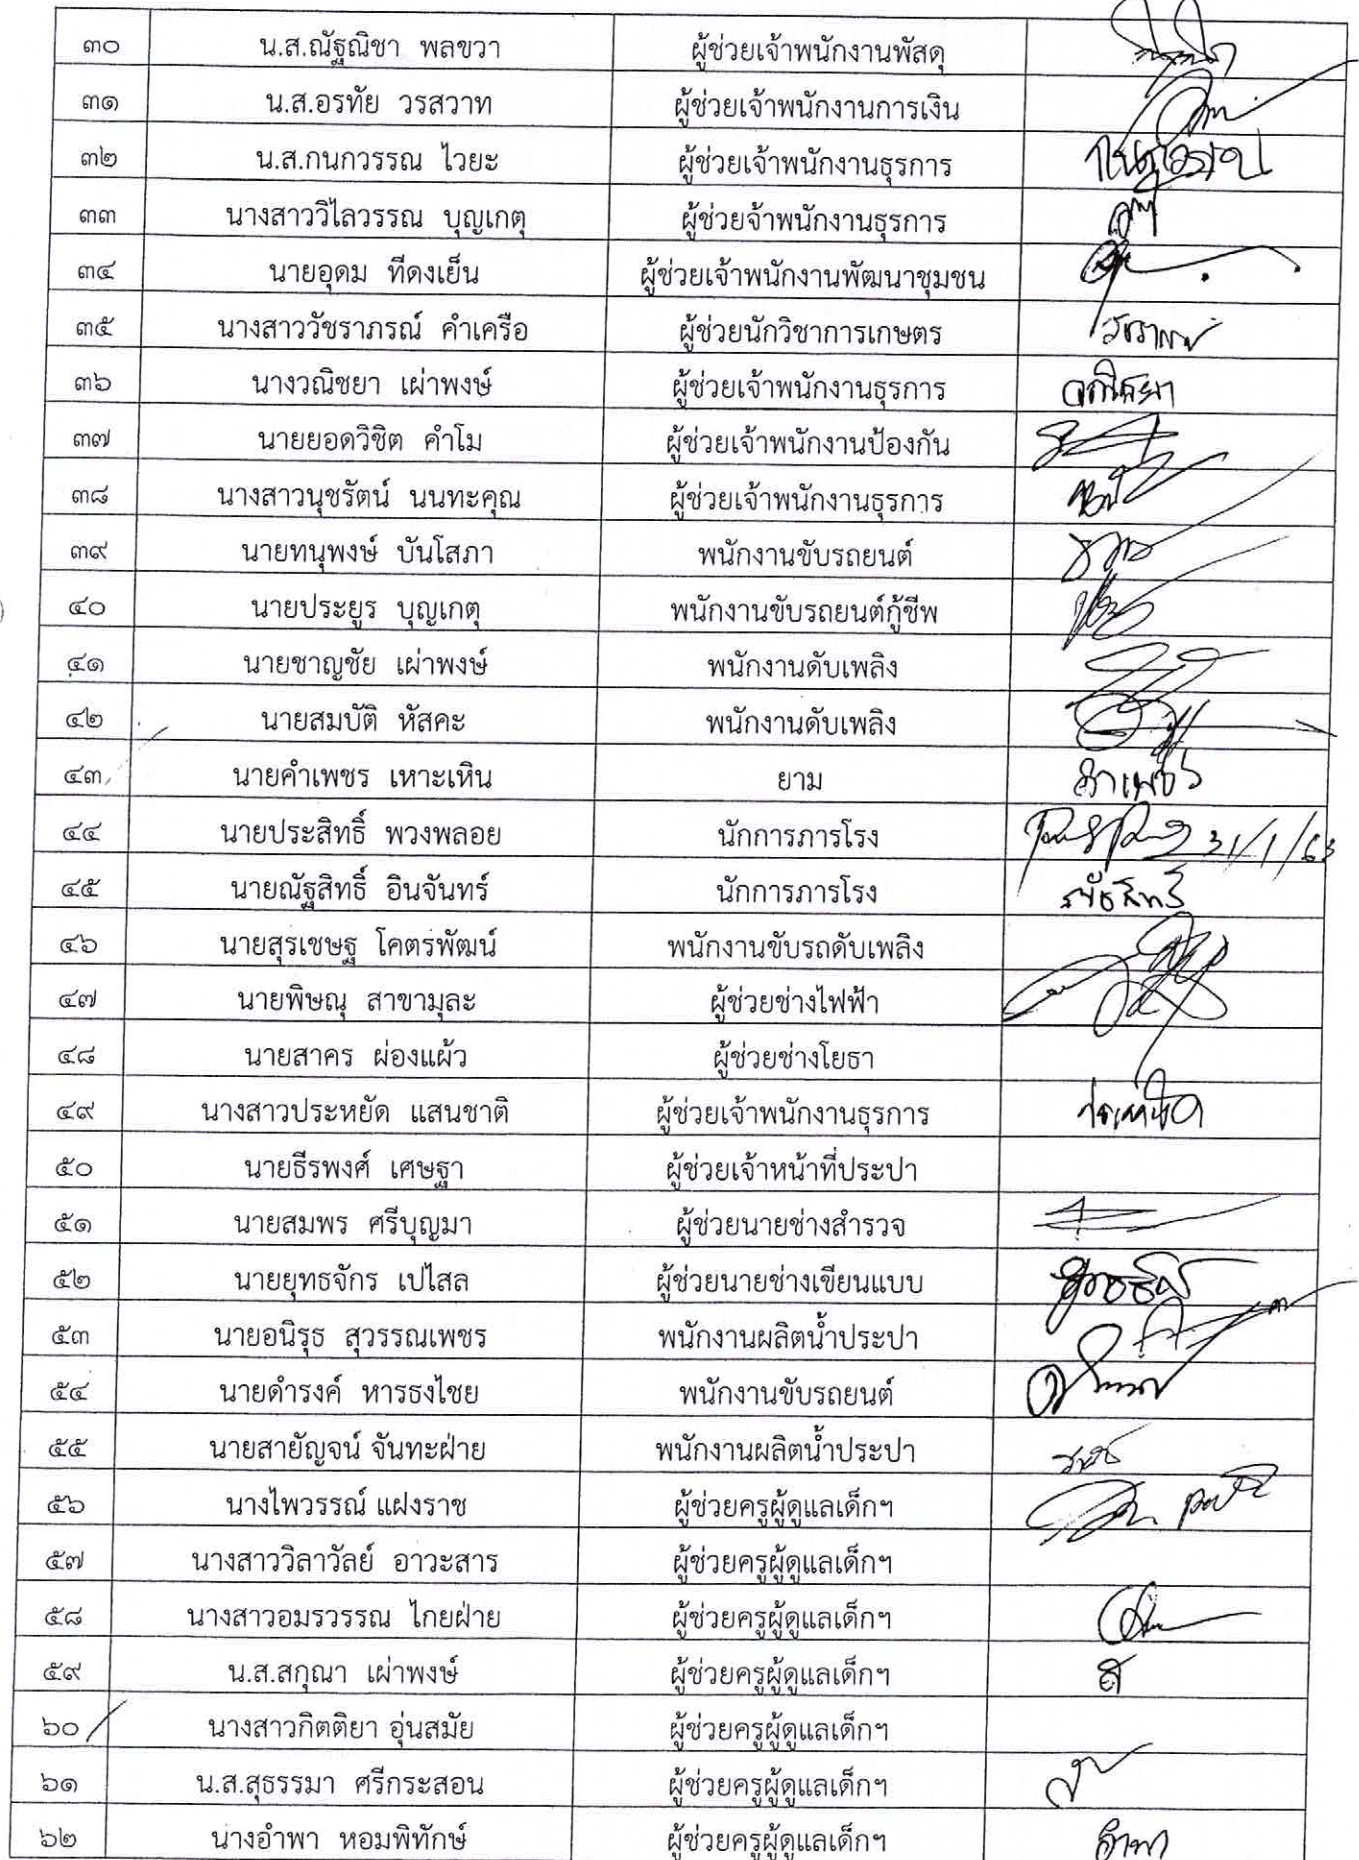 ๓๐ น.ส.ณัฐณิชา พลขวา ผู้ช่วยเจ้าพนักงานพัสดุ
๓๑ น.ส.อรทัย วรสวาท ผู้ช่วยเจ้าพนักงานการเงิน
๓๒ น.ส.กนกวรรณ ไวยะ ผู้ช่วยเจ้าพนักงานธุรการ กนกวรรณ
๓๓ นางสาววิไลวรรณ บุญเกตุ ผู้ช่วยจ้าพนักงานธุรการ
๓๔ นายอุดม ทีดงเย็น ผู้ช่วยเจ้าพนักงานพัฒนาชุมชน
๓๕ นางสาววัชราภรณ์ คำเครือ ผู้ช่วยนักวิชาการเกษตร
๓๖ นางวณิชยา เผ่าพงษ์ ผู้ช่วยเจ้าพนักงานธุรการ วณิชยา
๓๗ นายยอดวิชิต คำโม ผู้ช่วยเจ้าพนักงานป้องกัน
๓๘ นางสาวนุชรัตน์ นนทะคุณ ผู้ช่วยเจ้าพนักงานธุรการ
๓๙ นายทนุพงษ์ บันโสภา พนักงานขับรถยนต์
๔๐ นายประยูร บุญเกตุ พนักงานขับรถยนต์กู้ชีพ
๔๑ นายชาญชัย เผ่าพงษ์ พนักงานดับเพลิง
๔๒ นายสมบัติ หัสคะ พนักงานดับเพลิง
๔๓ นายคำเพชร เหาะเหิน ยาม คำเพชร
๔๔ นายประสิทธิ์ พวงพลอย นักการภารโรง 31/1/63
๔๕ นายณัฐสิทธิ์ อินจันทร์ นักการภารโรง ณัฐสิทธิ์
๔๖ นายสุรเชษฐ โคตรพัฒน์ พนักงานขับรถดับเพลิง
๔๗ นายพิษณุ สาขามุละ ผู้ช่วยช่างไฟฟ้า
๔๘ นายสาคร ผ่องแผ้ว ผู้ช่วยช่างโยธา
๔๙ นางสาวประหยัด แสนชาติ ผู้ช่วยเจ้าพนักงานธุรการ ประหยัด
๕๐ นายธีรพงศ์ เศษฐา ผู้ช่วยเจ้าหน้าที่ประปา
๕๑ นายสมพร ศรีบุญมา ผู้ช่วยนายช่างสำรวจ
๕๒ นายยุทธจักร เปไสล ผู้ช่วยนายช่างเขียนแบบ
๕๓ นายอนิรุธ สุวรรณเพชร พนักงานผลิตน้ำประปา
๕๔ นายดำรงค์ หารธงไชย พนักงานขับรถยนต์
๕๕ นายสายัญจน์ จันทะฝ่าย พนักงานผลิตน้ำประปา
๕๖ นางไพวรรณ์ แฝงราช ผู้ช่วยครูผู้ดูแลเด็กฯ
๕๗ นางสาววิลาวัลย์ อาวะสาร ผู้ช่วยครูผู้ดูแลเด็กฯ
๕๘ นางสาวอมรวรรณ ไกยฝ่าย ผู้ช่วยครูผู้ดูแลเด็กฯ
๕๙ น.ส.สกุณา เผ่าพงษ์ ผู้ช่วยครูผู้ดูแลเด็กฯ ส
๖๐ นางสาวกิตติยา อุ่นสมัย ผู้ช่วยครูผู้ดูแลเด็กฯ
๖๑ น.ส.สุธรรมา ศรีกระสอน ผู้ช่วยครูผู้ดูแลเด็กฯ
๖๒ นางอำพา หอมพิทักษ์ ผู้ช่วยครูผู้ดูแลเด็กฯ อำพา